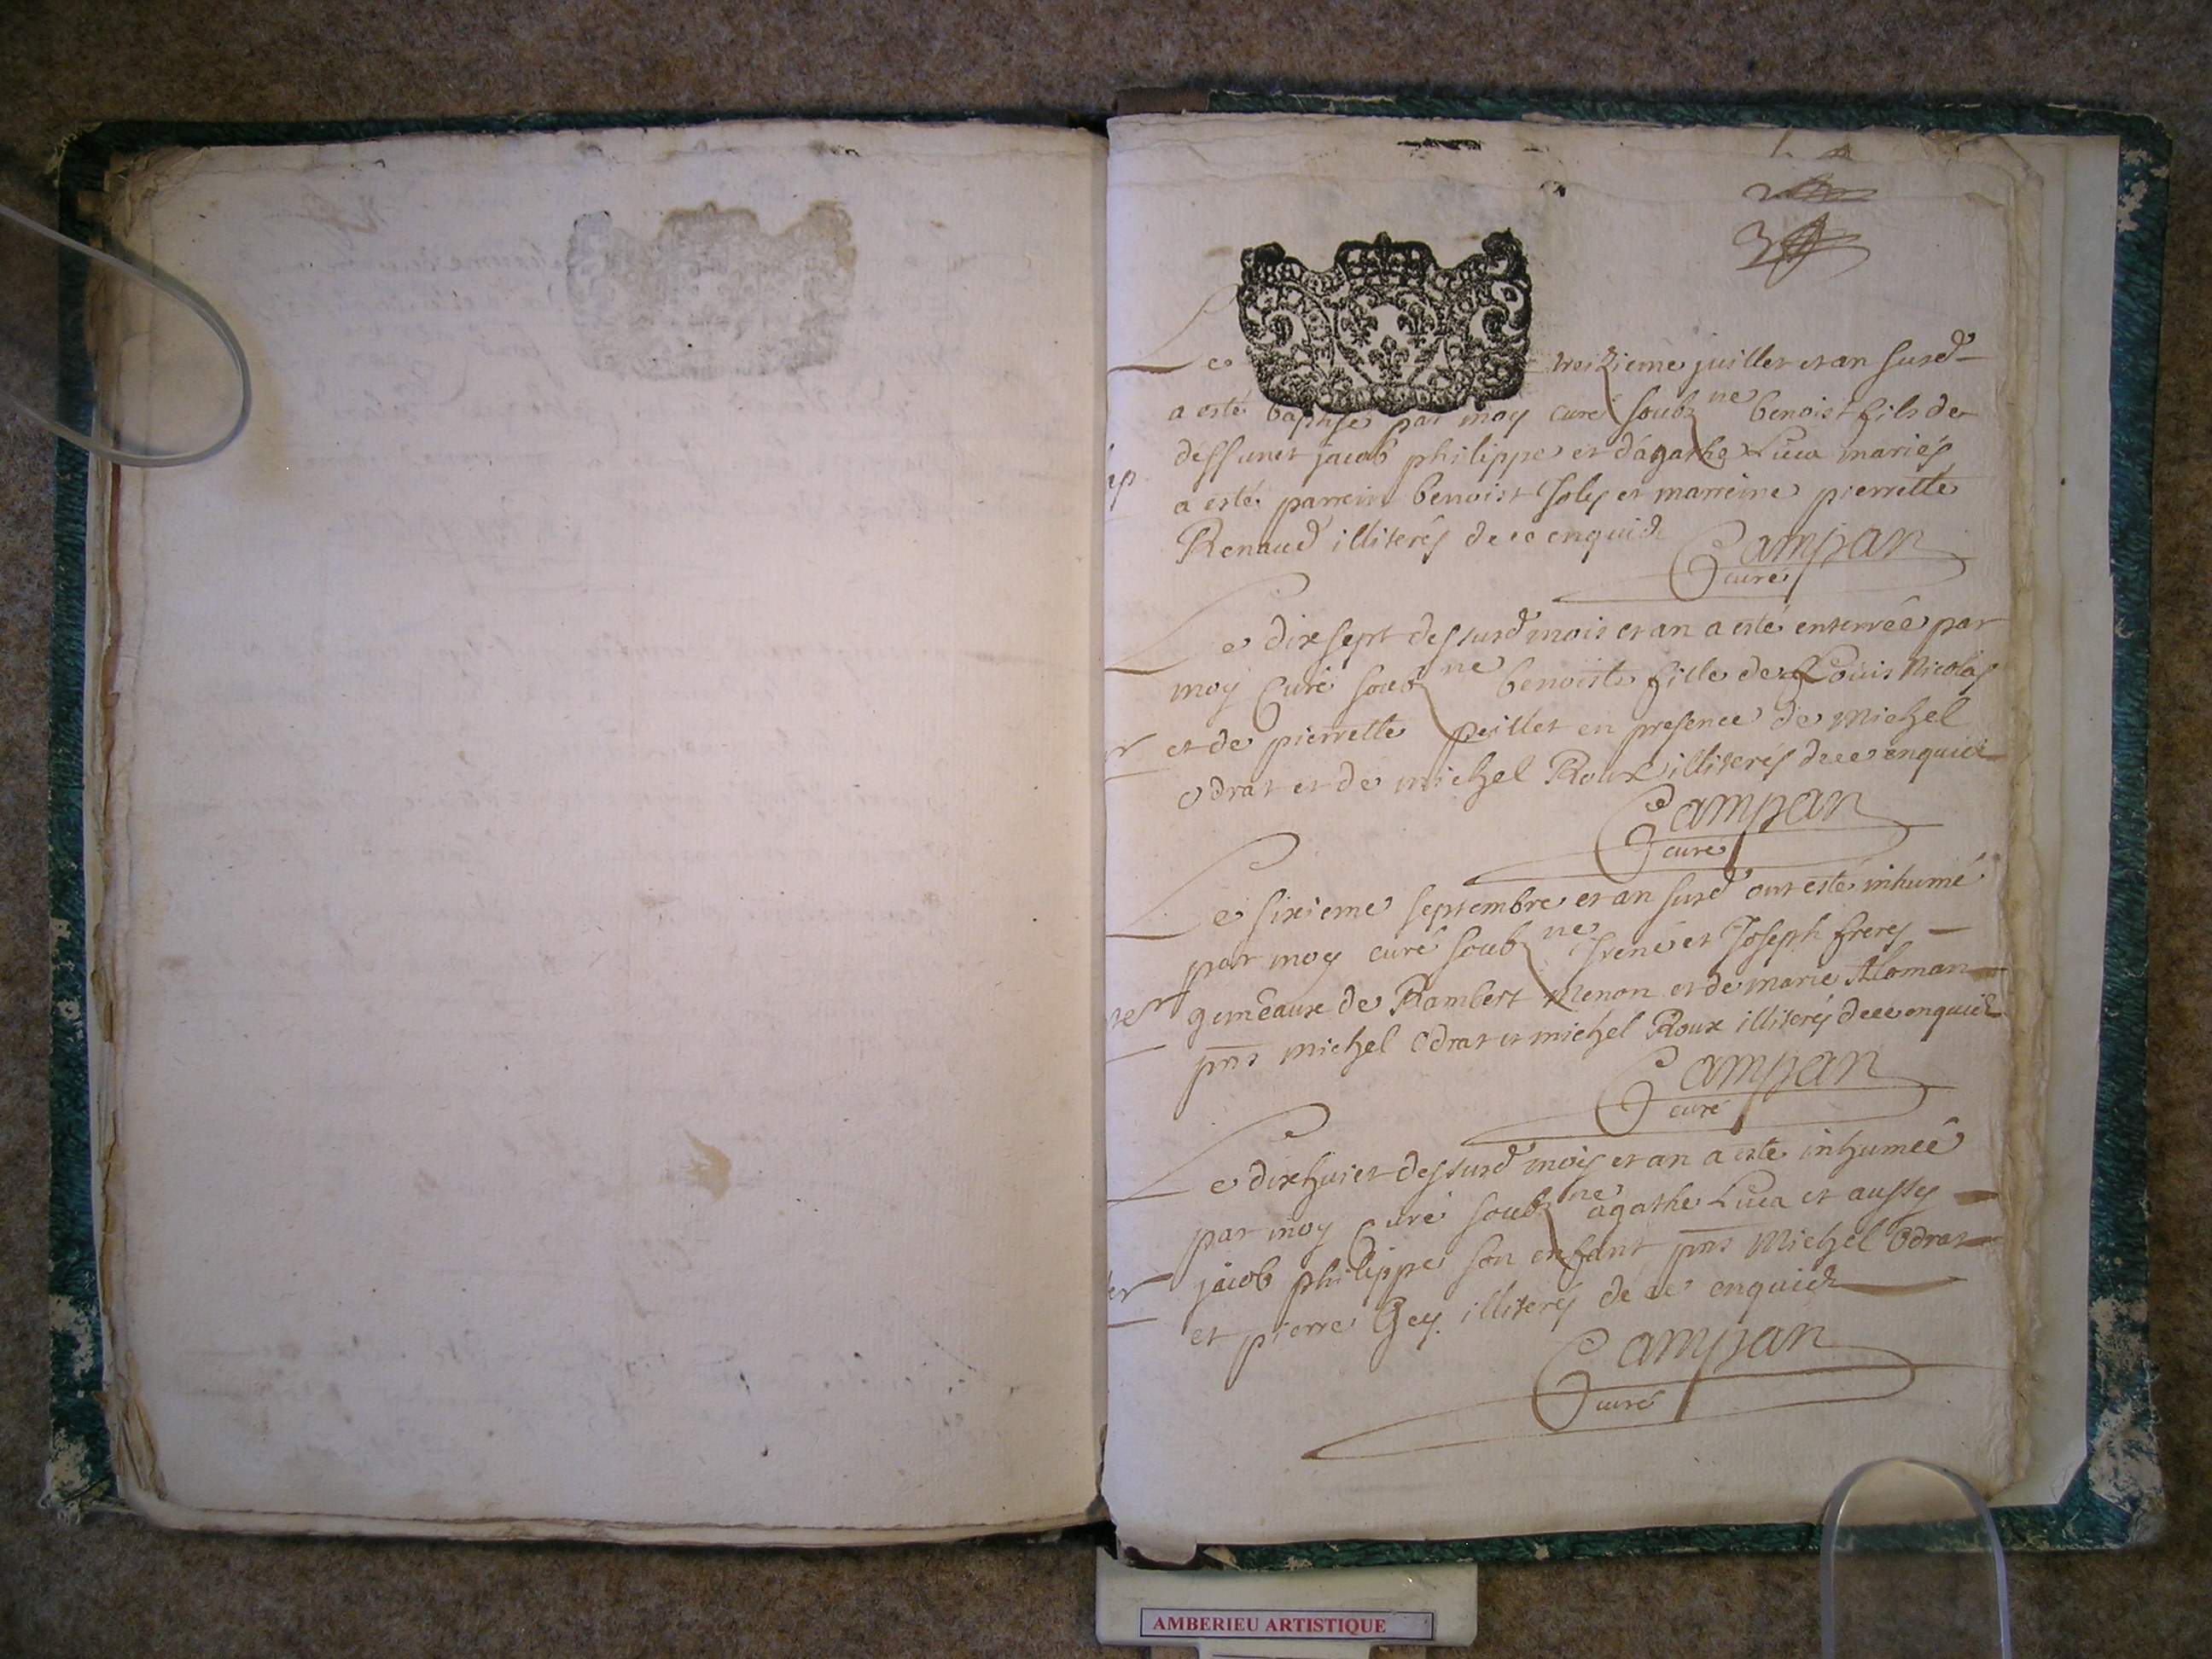 Le treizieme juillet et an susd
a esté baptise par moy curé soubz ne benoist fils de
deffunct jacob philippe et d'agathe Luca mariés
a esté parrein benoist Joly et marreine pierrette
Renaud illiterés de ce enquich
Campan
curé
Le dix sept des susd mois et an a esté enterrée par
moy Curé soubz ne benoiste fille de Louis Nicolas
et de pierrette peillet en presence de Michel
odrat et de michel Roux illiterés de ce enquich
Campan
curé
Le sixieme septembre et an susd ont esté inhumé
par moy curé soubz ne Irené et Joseph freres
gemeaux de Rambert Menon et de marie Aloman
pnts michel Odrat et michel Roux illiterés de ce enquich
Campan
curé
Le dix huict des susd mois et an a esté inhumée
par moy Curé soubz ne agathe Luca et aussy
jacob philippe son enfant pnts Michel Odrat
et pierre Gey illiterés de ce enquich
Campan
curé
AMBERIEU ARTISTIQUE